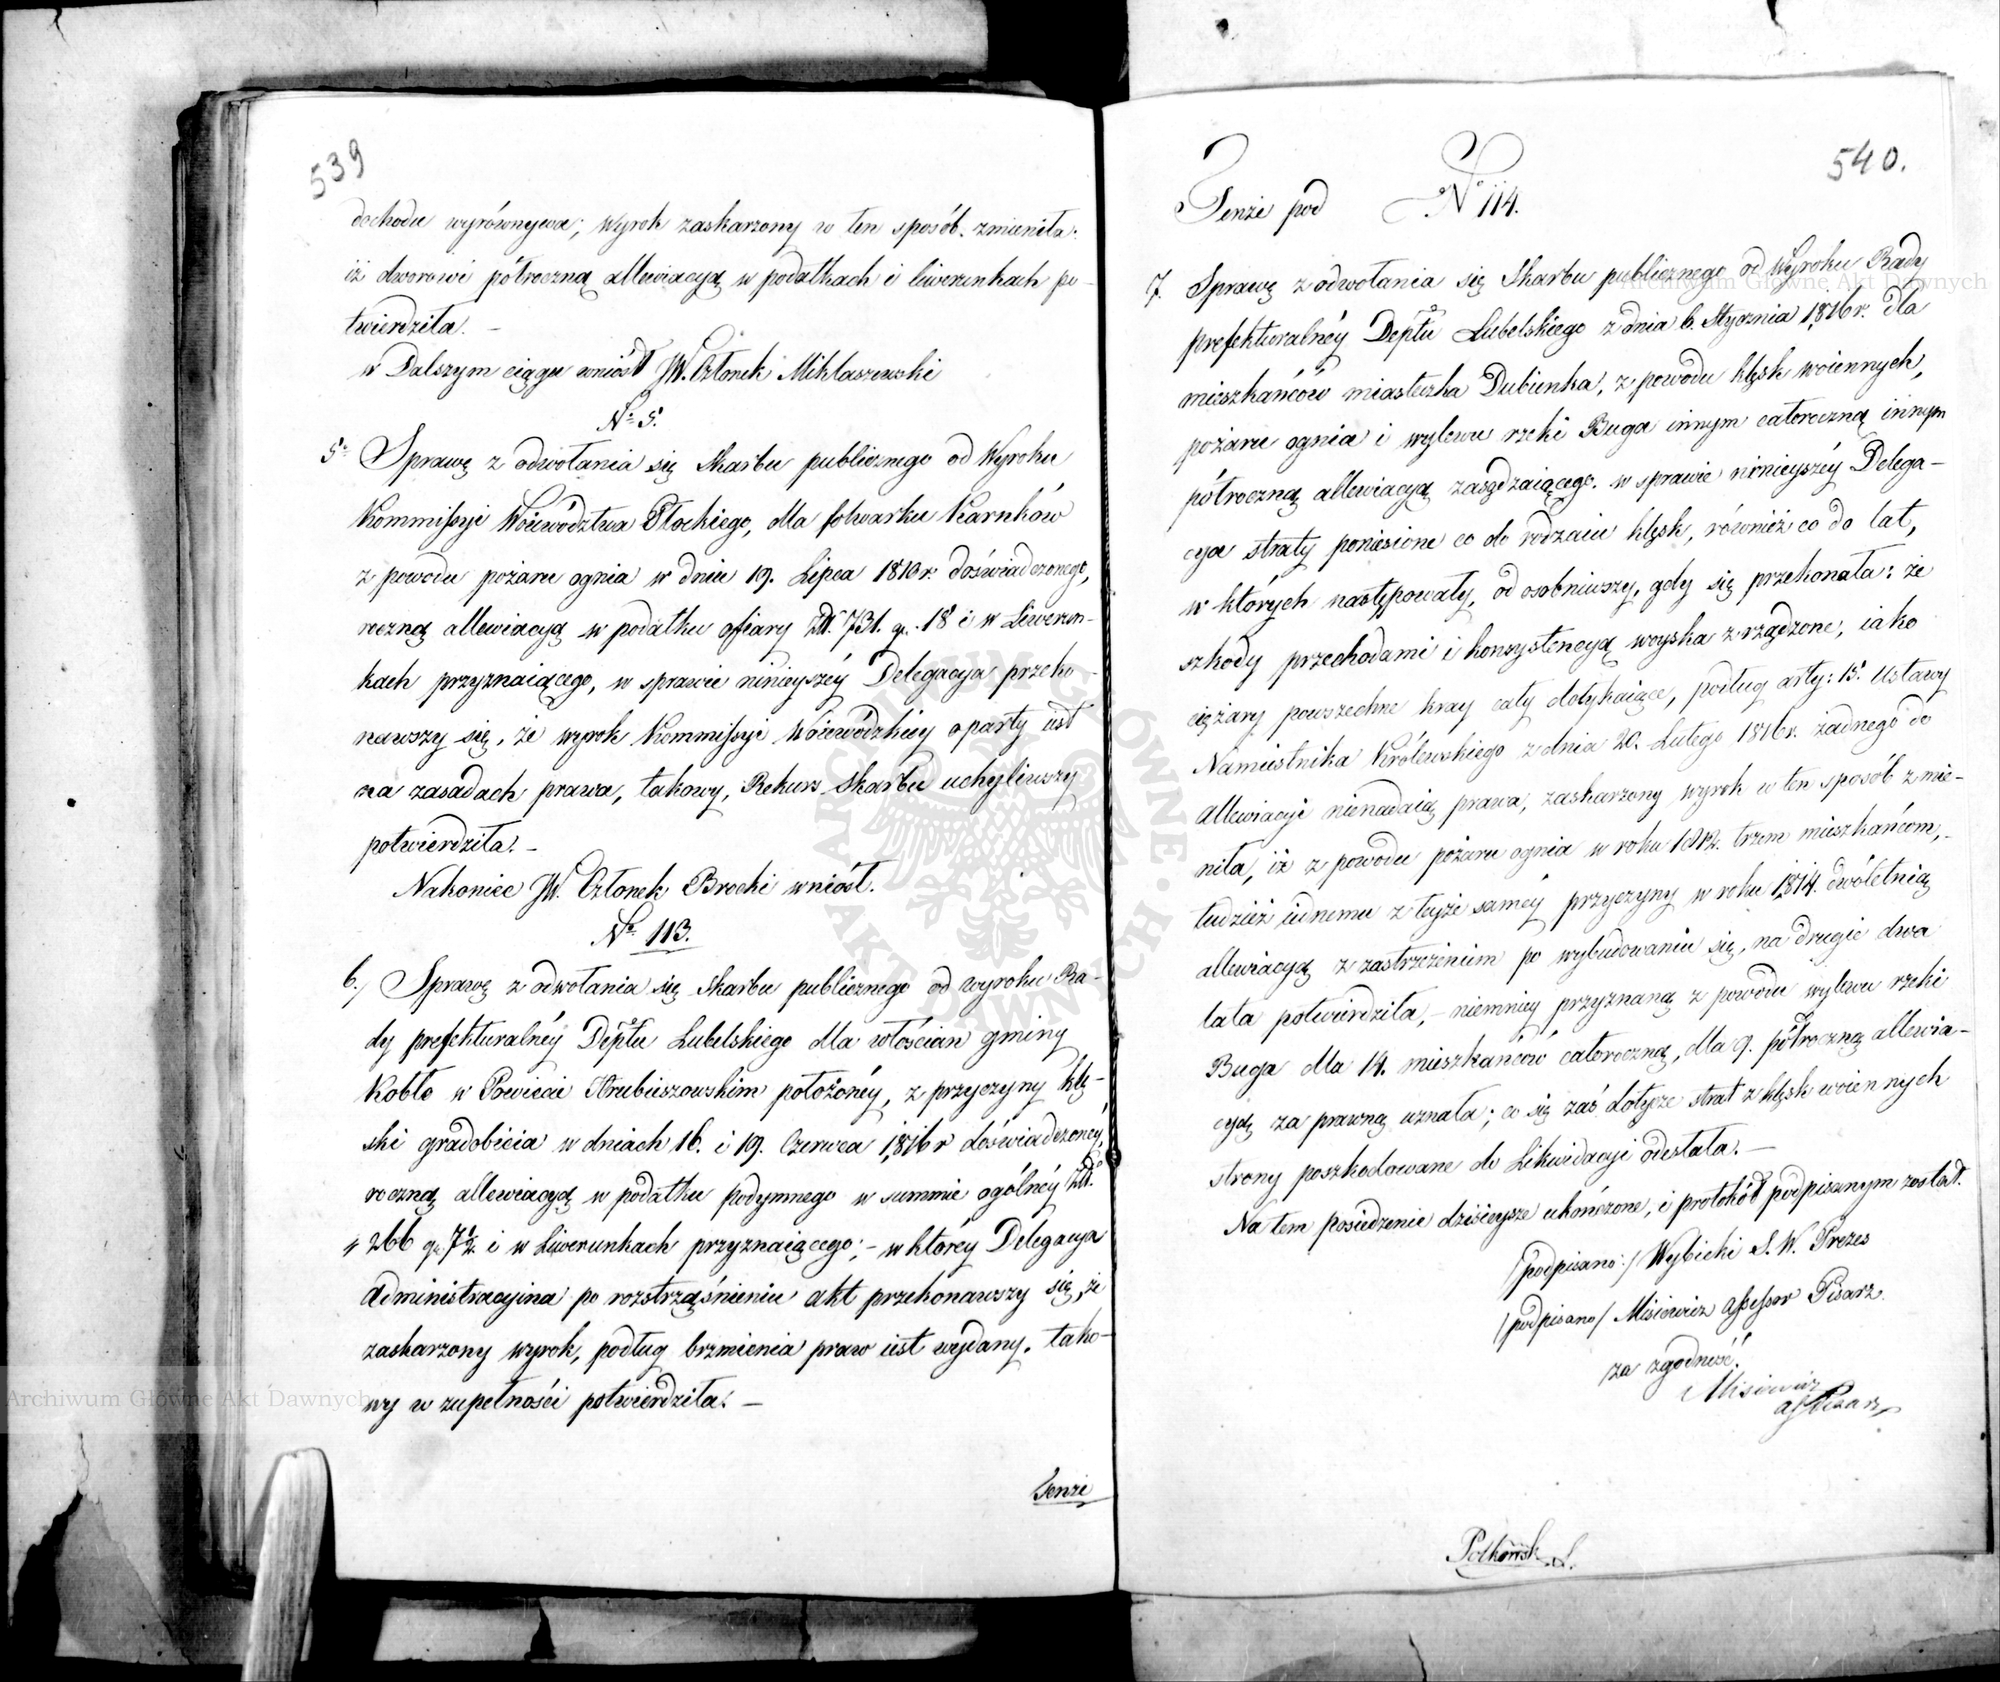 539
dochodu wyrównywa; wyrok zaskarzony w ten sposób zmieniła:
iż dworowi półroczną allewiacyą w podatkach i liwerunkach po-
twierdziła. –
w Dalszym ciągu wniósł JW. Członek Miklaszewski
No 5.
5o Sprawę z odwołania się Skarbu publicznego od Wyroku
Kommissyi Woiewództwa Płockiego, dla folwarku Karnków
z powodu pożaru ognia w dniu 19. Lipca 1816 r. doświadczonego,
roczną allewiacyą w podatku ofiary Zł. 731. gr. 18 i w Liwerun-
kach przyznaiącego, w sprawie ninieyszéy Delegacya przeko-
nawszy się, że wyrok Kommissyi Woiewódzkiey oparty iest
na zasadach prawa, takowy, Rekurs Skarbu uchyliwszy
potwierdziła. –
Nakoniec JW. Członek Brocki wniósł.
No 113.
6./ Sprawę z odwołania się Skarbu publicznego od wyroku Ra-
dy prefekturalnéy Deptu Lubelskiego dla włościan gminy
Kobło w Powiecie Hrubieszowskim położonéy, z przyczyny klę-
ski gradobicia w dniach 16. i 19. Czerwca 1816 r doświadczonéy,
roczną allewiacyą w podatku podymnego w summie ogólnéy Zł.
266 gr 7½ i w Liwerunkach przyznaiącego; – w któréy Delegacya
Administracyina po rozstrząśnieniu akt przekonawszy się, że
zaskarzony wyrok, podług brzmienia praw iest wydany, tako-
wy w zupełności potwierdziła. –
Tenże
540.
Tenże pod No 114.
7. Sprawę z odwołania się Skarbu publicznego od Wyroku Rady
prefekturalnéy Deptu Lubelskiego z dnia 6. Stycznia 1816 r. dla
mieszkańców miasteczka Dubienka, z powodu klęsk woiennych,
pożaru ognia i wylewu rzeki Buga innym całoroczną innym
półroczną allewiacyą zasądzaiącego. w sprawie ninieyszéy Delega-
cya straty poniesione co do rodzaiu klęsk, równiéż co do lat,
w których następowały, odosobniwszy, gdy się przekonała: że
szkody przechodami i konsystencyą woyska zrządzone, iako
ciężary powszechne kray cały dotykaiące, podług arty: 15. Ustawy
Namiestnika Królewskiego z dnia 20. Lutego 1816 r. żadnego do
allewiacyi nienadaią prawa, zaskarzony wyrok w ten sposób zmie-
niła, iż z powodu pożaru ognia w roku 1812. trzem mieszkańcom, –
tudzież iednemu z teyże saméy przyczyny w roku 1814. dwóletnią
allewiacyą z zastrzeżeniem po wybudowaniu się, na drugie dwa
lata potwierdziła, – niemniey przyznaną z powodu wylewu rzeki
Buga dla 14. mieszkańców całoroczną, dla 9. półroczną allewia-
cyą za prawną uznała; co się zaś dotycze strat z klęsk woiennych
strony poszkodowane do Likwidacyi odesłała. –
Na tem posiedzenie dzisieysze ukończone, i protokół podpisanym został.
/podpisano:/ Wybicki S. W. Prezes
/podpisano/ Misiewicz Assessor Pisarz.
za zgodność.
Misiewicz
As Pisarz
Archiwum Główne Akt Dawnych
Archiwum Główne Akt Dawnych
ARCHIWUM GŁÓWNE AKT DAWNYCH